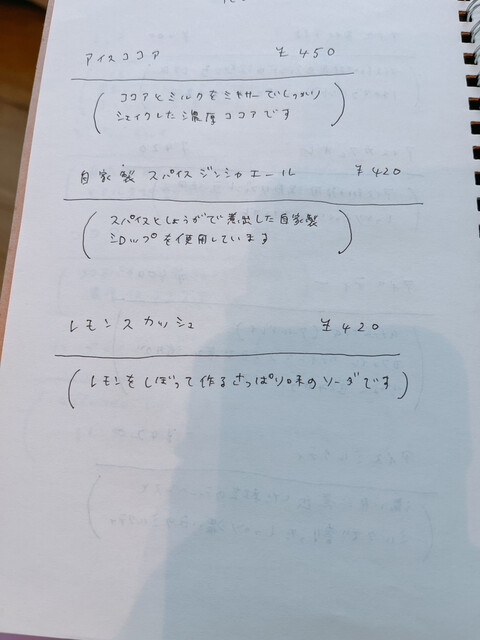 アイスココア ¥450
(ココアとミルクをミキサーでしっかり
シェイクした濃厚ココアです)
自家製スパイスジンジャエール ¥420
(スパイスとしょうがで煮出した自家製
シロップを使用しています)
レモンスカッシュ ¥420
(レモンをしぼって作るさっぱり味のソーダです)